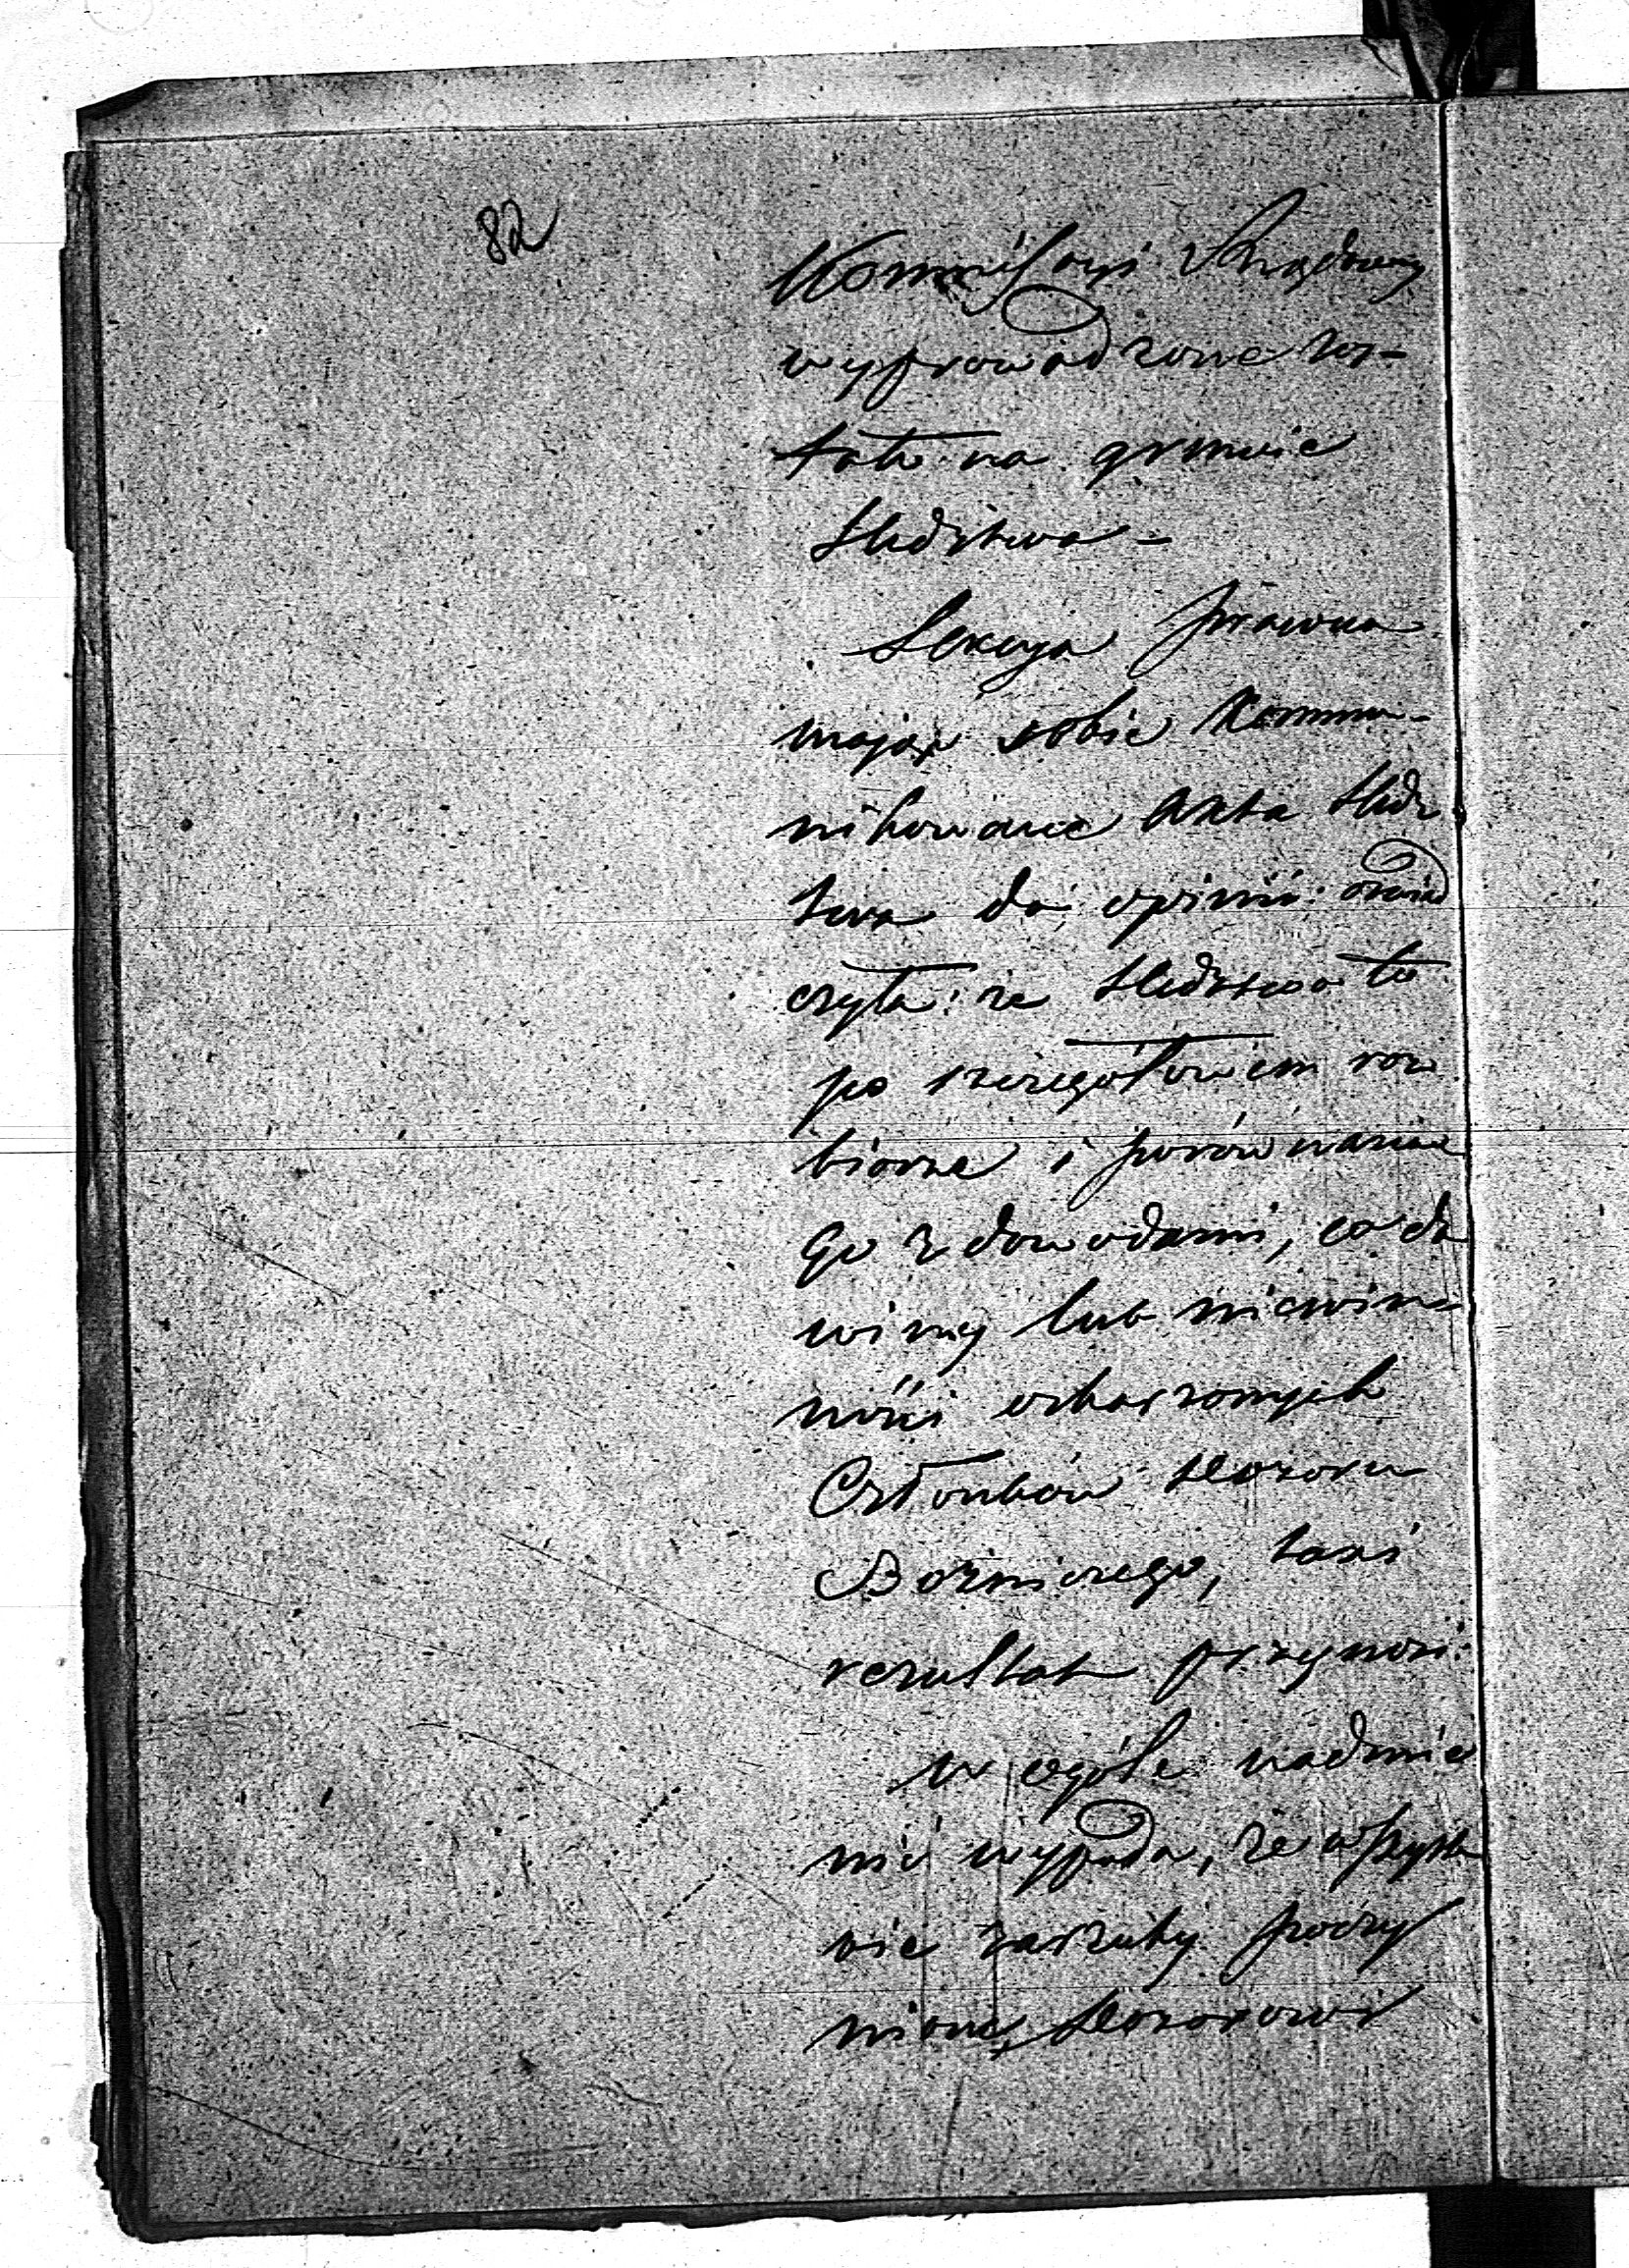 82
Kommissyi Rządowey
wyprowadzone zo-
stało na gruncie
śledztwo -
Sekcya prawna
mając sobie Kommu-
nikowane Akta śledz
twa do opinii: oświad
czyła: że śledztwo to
po szczegółowem roz
biorze i porównaniu
go z dowodami, co do
winy lub niewin-
ności oskarżonych
Członków Dozoru
Bożniczego, taki
rezultat przynosi:
w ogóle nadmie
nić wypada, że wszyst
kie zarzuty poczy
nione Dozorowi